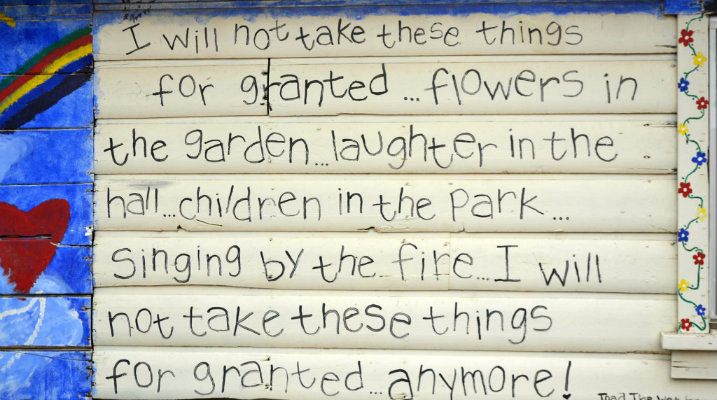 I will not take these things
for granted... flowers in
the garden... laughter in the
hall... children in the Park...
Singing by the fire... I will
not take these things
for granted... anymore!
Toad The